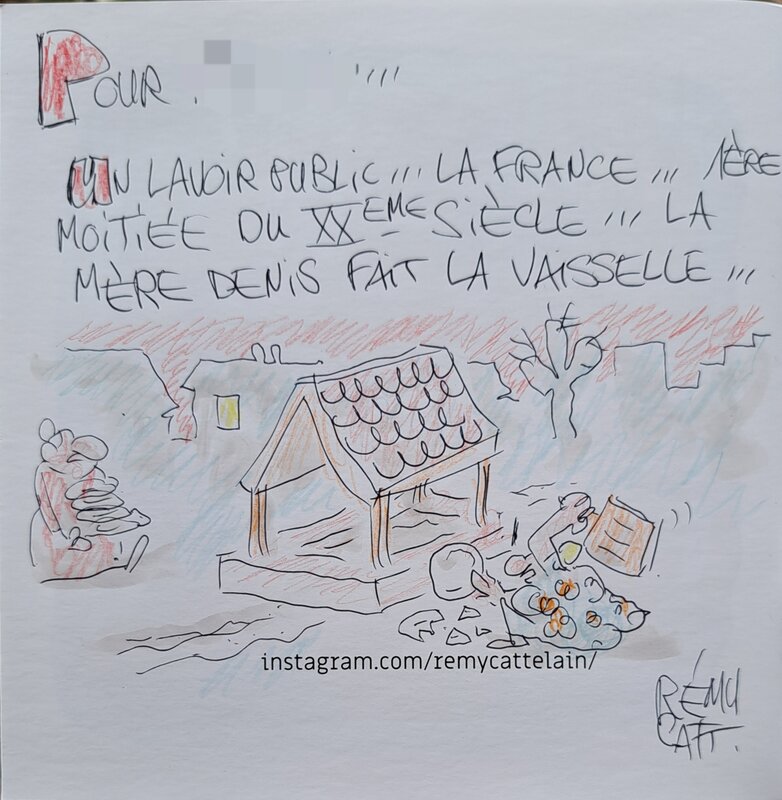 POUR . ''''
UN LAVOIR PUBLIC... LA FRANCE... 1ÈRE
MOITIÉE DU XXEME SIÈCLE... LA
MÈRE DENIS FAIT LA VAISSELLE...
instagram.com/remycattelain/
RÉMY
CATT.